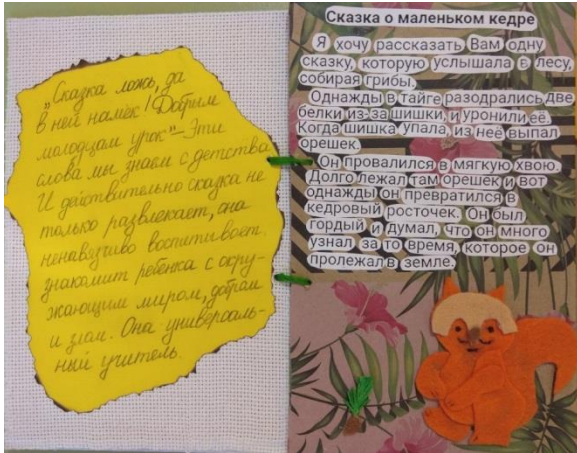 „Сказка ложь, да
в ней намёк! Добрым
молодцам урок" – Эти
слова мы знаем с детства
И действительно сказка не
только развлекает, она
ненавязчиво воспитывает.
знакомит ребенка с окру-
жающим миром, добром
и злом. Она универсаль-
ный учитель.
Сказка о маленьком кедре
Я хочу рассказать Вам одну
сказку, которую услышала в лесу,
собирая грибы.
Однажды в тайге разодрались две
белки из-за шишки, и уронили её.
Когда шишка упала, из неё выпал
орешек.
Он провалился в мягкую хвою.
Долго лежал там орешек и вот
однажды он превратился в
кедровый росточек. Он был
гордый и думал, что он много
узнал за то время, которое он
пролежал в земле.